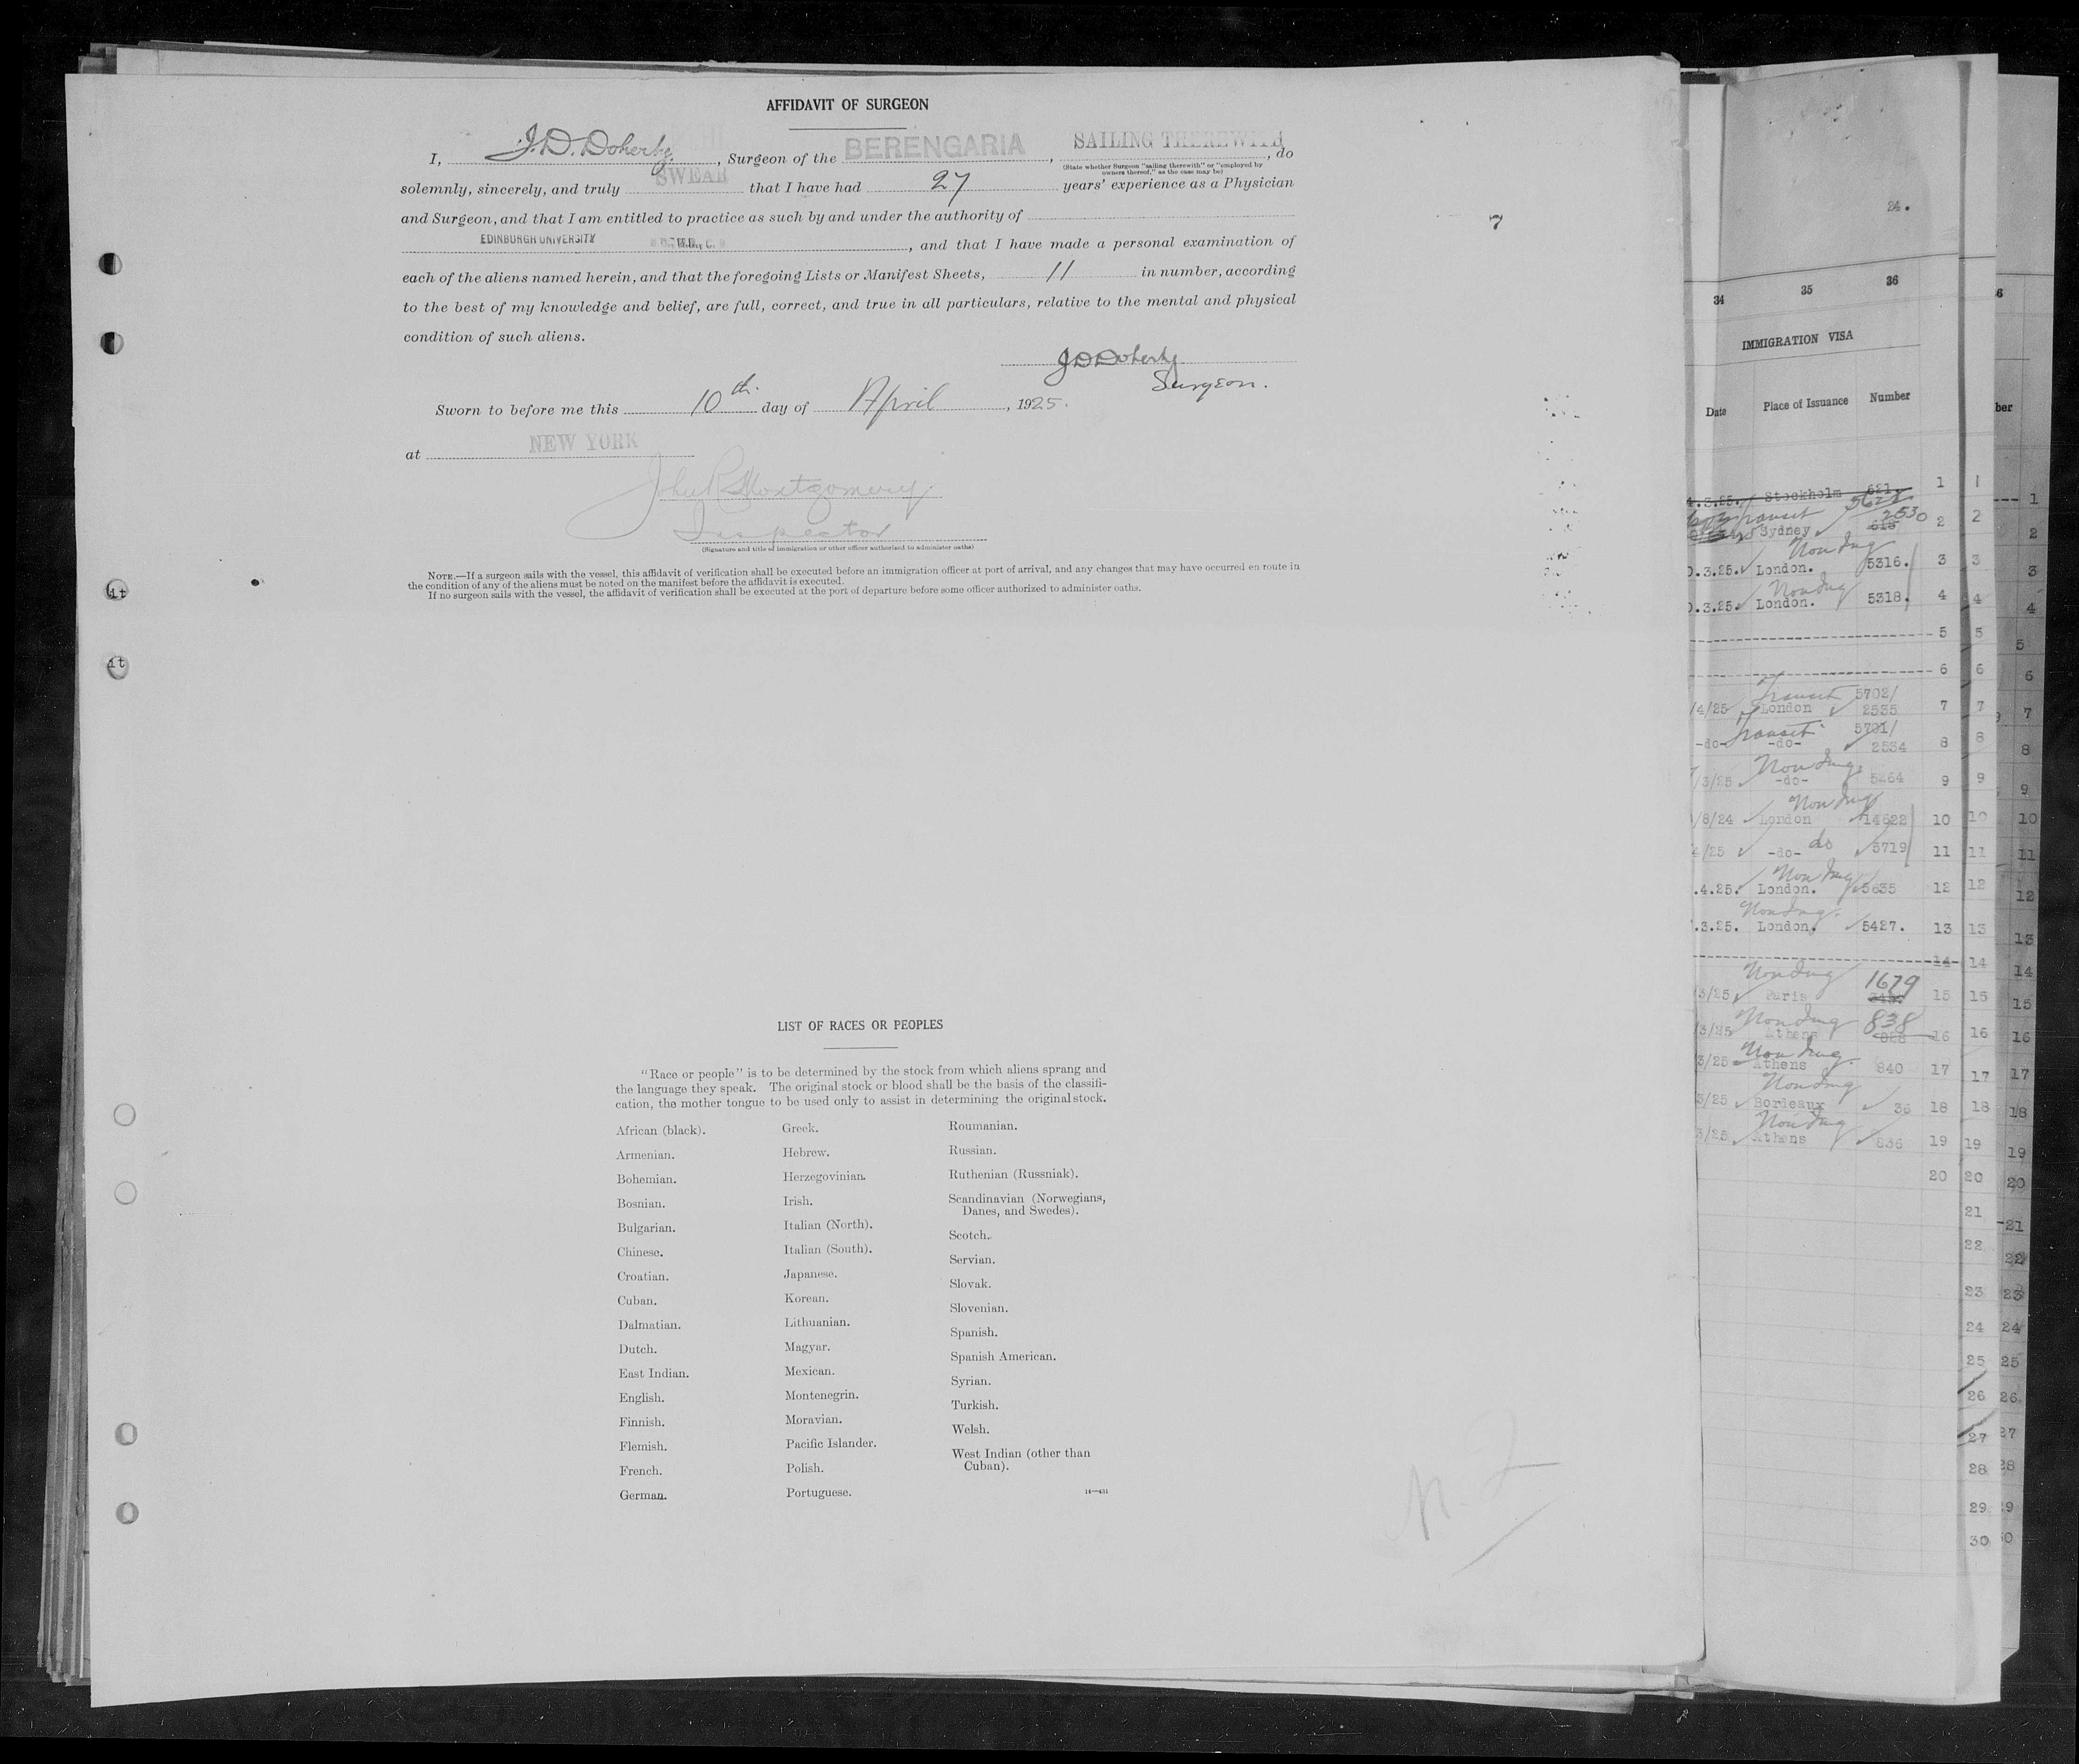 AFFIDAVIT OF SURGEON
I, J.D. Doherty, Surgeon of the BERENGARIA, SAILING THEREWITH, do
(State whether Surgeon "sailing therewith" or "employed by
owners thereof," as the case may be)
solemnly, sincerely, and truly SWEAR that I have had 27 years' experience as a Physician
and Surgeon, and that I am entitled to practice as such by and under the authority of
EDINBURGH UNIVERSITY, and that I have made a personal examination of
each of the aliens named herein, and that the foregoing Lists or Manifest Sheets, 11 in number, according
to the best of my knowledge and belief, are full, correct, and true in all particulars, relative to the mental and physical
condition of such aliens.
J D Doherty
Surgeon.
Sworn to before me this 10th day of April, 1925.
at NEW YORK
John R Montgomery
Inspector
(Signature and title of immigration or other officer authorized to administer oaths)
NOTE.—If a surgeon sails with the vessel, this affidavit of verification shall be executed before an immigration officer at port of arrival, and any changes that may have occurred en route in
the condition of any of the aliens must be noted on the manifest before the affidavit is executed.
If no surgeon sails with the vessel, the affidavit of verification shall be executed at the port of departure before some officer authorized to administer oaths.
7
it
it
LIST OF RACES OR PEOPLES
"Race or people" is to be determined by the stock from which aliens sprang and
the language they speak. The original stock or blood shall be the basis of the classifi-
cation, the mother tongue to be used only to assist in determining the original stock.
African (black).
Armenian.
Bohemian.
Bosnian.
Bulgarian.
Chinese.
Croatian.
Cuban.
Dalmatian.
Dutch.
East Indian.
English.
Finnish.
Flemish.
French.
German.
Greek.
Hebrew.
Herzegovinian.
Irish.
Italian (North).
Italian (South).
Japanese.
Korean.
Lithuanian.
Magyar.
Mexican.
Montenegrin.
Moravian.
Pacific Islander.
Polish.
Portuguese.
Roumanian.
Russian.
Ruthenian (Russniak).
Scandinavian (Norwegians,
Danes, and Swedes).
Scotch.
Servian.
Slovak.
Slovenian.
Spanish.
Spanish American.
Syrian.
Turkish.
Welsh.
West Indian (other than
Cuban).
14—431
24.
34 35 36
IMMIGRATION VISA
Date Place of Issuance Number
.3.25. Stockholm 621. 1
Transit 5628
Sydney 2530 2
Non Img
.3.25. London. 5316. 3
Non Img
.3.25. London. 5318. 4
5
6
Transit 5702/
/4/25 London 2535 7
Transit 5701/
-do- -do- 2534 8
Non Img
/3/25 -do- 5464 9
Non Img
/8/24 London 14622 10
/25 -do- do 5719 11
Non Img
.4.25. London. 5635 12
Non Img.
.3.25. London. 5427. 13
14
Non Img 1679
3/25 Paris 15
Non Img 838
/3/25 Athens 16
Non Img.
3/25 Athens 840 17
Non Img
3/25 Bordeaux 36 18
Non Img
3/25 Athens 836 19
20
1
2
3
4
5
6
7
8
9
10
11
12
13
14
15
16
17
18
19
20
21
22
23
24
25
26
27
28
29
30
6
ber
1
2
3
4
5
6
7
8
9
10
11
12
13
14
15
16
17
18
19
20
21
22
23
24
25
26
27
28